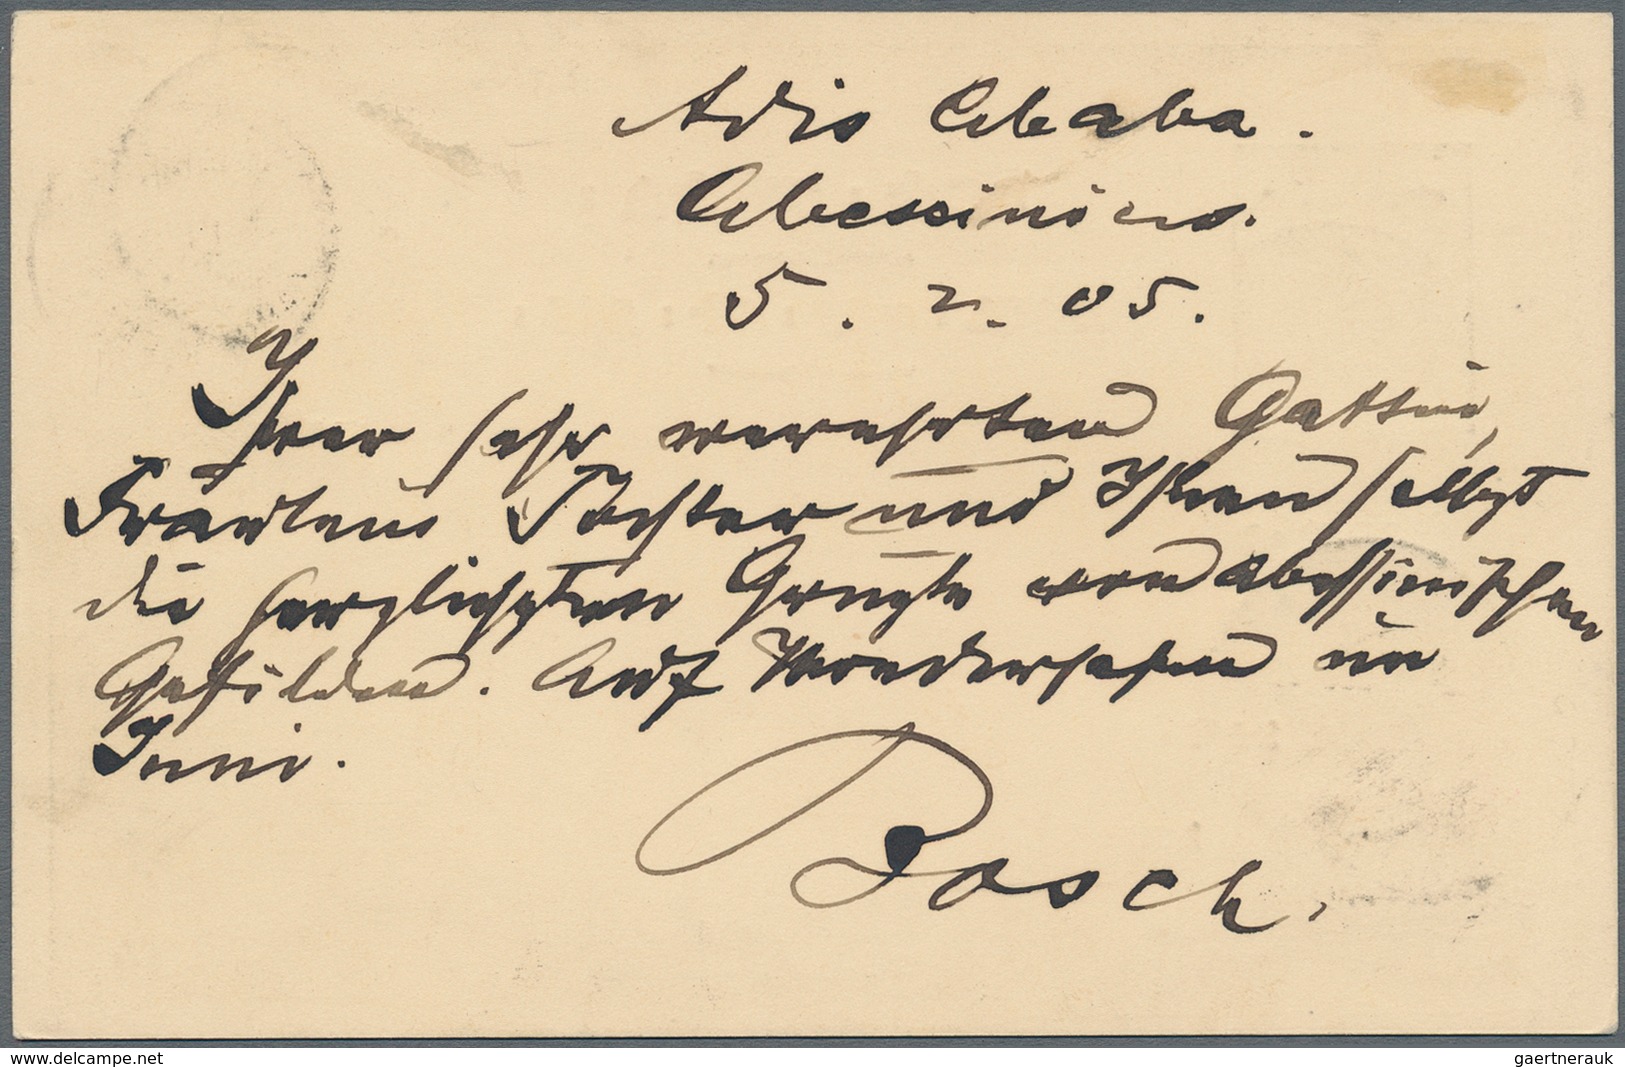 Adis Ababa.
Abessinien.
5. 2. 05.
Ihrer sehr verehrten Gattin,
Fräulein Tochter und Ihnen selbst
die herzlichsten Grüße von abessinischen
Gefilden. Auf Wiedersehen im
Juni.
Bosch.
www.delcampe.net
gaertnerauk